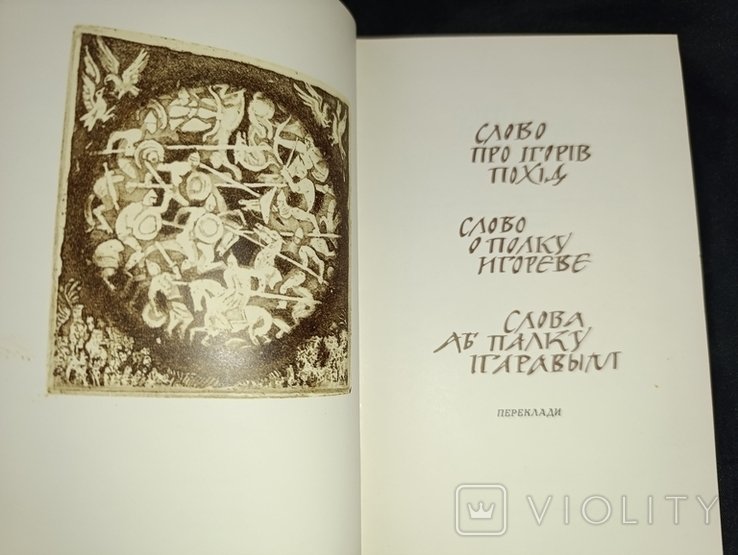 СЛОВО
ПРО ІГОРІВ
ПОХІД
СЛОВО
О ПОЛКУ
ИГОРЕВЕ
СЛОВА
АБ ПАЛКУ
ІГАРАВЫМ
ПЕРЕКЛАДИ
VIOLITY